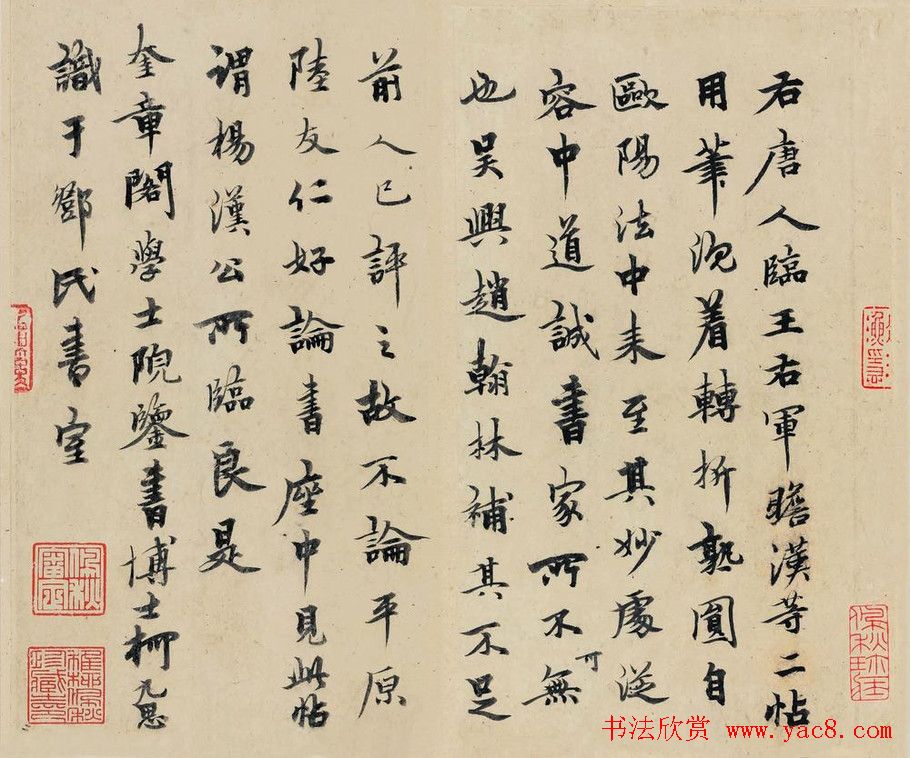 右唐人臨王右軍瞻漢等二帖
用筆沉着轉折熟圓自
歐陽法中来至其妙處從
容中道誠書家所不可無
也吴興趙翰林補其不足
前人已評之故不論平原
陸友仁好論書座中見此帖
謂楊漢公所臨良是
奎章閣學士院鑒書博士柯九思
識于鄧氏書室
书法欣赏 www.yac8.com